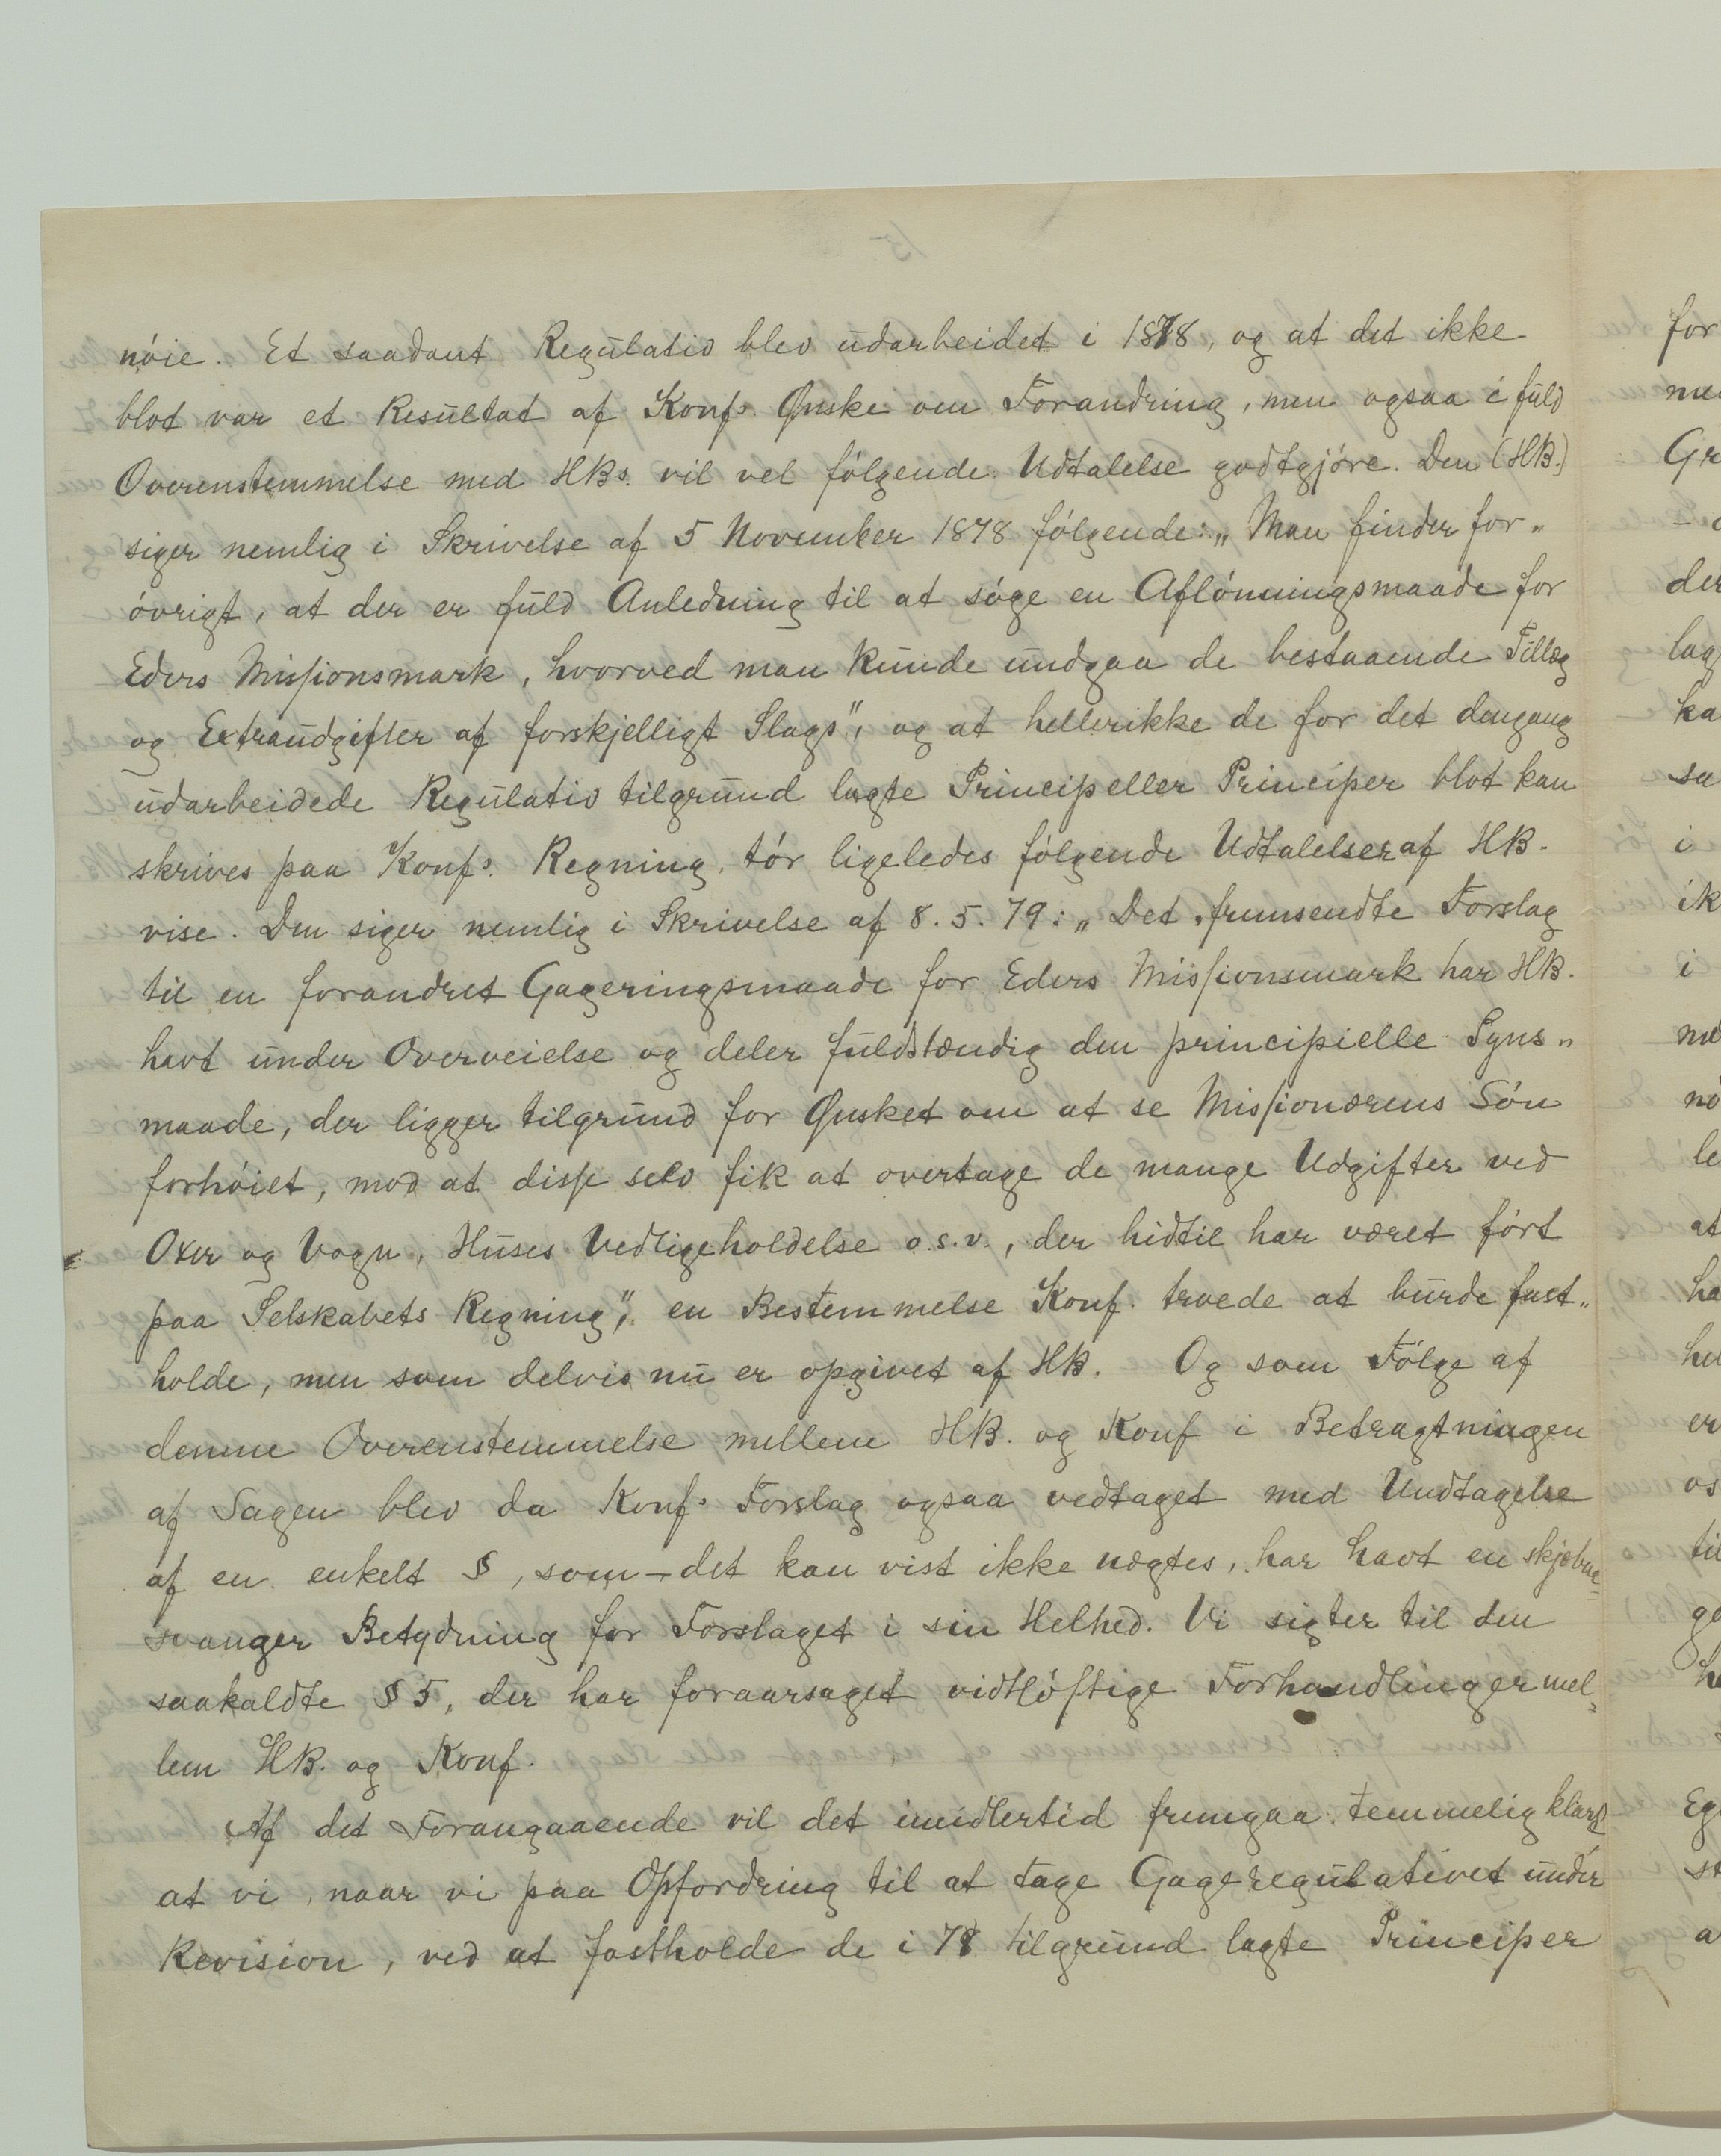 nóie. Et saadant Regulativ blev udarbeidet i 1878, og at det ikke
blot var et Resultat af Konfs. Ønske om Forandring, men ogsaa i fuld
Overenstemmelse med HBs. vil vel fólgende Udtalelse godtgjóre. Den (HB.)
siger nemlig i Skrivelse af 5 November 1878 fólgende: „Man finder for„
óvrigt, at der er fuld Anledning til at sóge en Aflónningsmaade for
Eders Missionsmark, hvorved man kunde undgaa de bestaaende Tillæg
og Extraudgifter af forskjelligt Slags", og at hellerikke de for det dengang
udarbeidede Regulativ tilgrund lagte Princip eller Principer blot kan
skrives paa Konfs. Regning, tór ligeledes fólgende Udtalelser af HB.
vise. Den siger nemlig i Skrivelse af 8.5.79: „Det fremsendte Forslag
til en forandret Gageringsmaade for Eders Missionsmark har HB.
havt under Overveielse og deler fuldstændig den principielle Syns„
maade, der ligger tilgrund for Ønsket om at se Missionærens Lón
forhóiet, mod at disse selv fik at overtage de mange Udgifter ved
Oxer og Vogn, Huses Vedligeholdelse o.s.v., der hidtil har været fórt
paa Selskabets Regning", en Bestemmelse Konf. troede at burde fast„
holde, men som delvis nu er opgivet af HB. Og som Fólge af
denne Overenstemmelse mellem HB. og Konf i Betragtningen
af Sagen blev da Konfs Forslag ogsaa vedtaget med Undtagelse
af en enkelt §, som – det kan vist ikke nægtes, har havt en skjæbne-
svanger Betydning for Forslaget i sin Helhed. Vi sigter til den
saakaldte § 5, der har foraarsaget vidtlóftige Forhandlinger mel„
lem HB. og Konf.
Af det Forangaaende vil det imidlertid fremgaa temmelig klart,
at vi, naar vi paa Opfordring til at tage Gageregulativet under
Revision, ved at fastholde de i 78 tilgrund lagte Principer